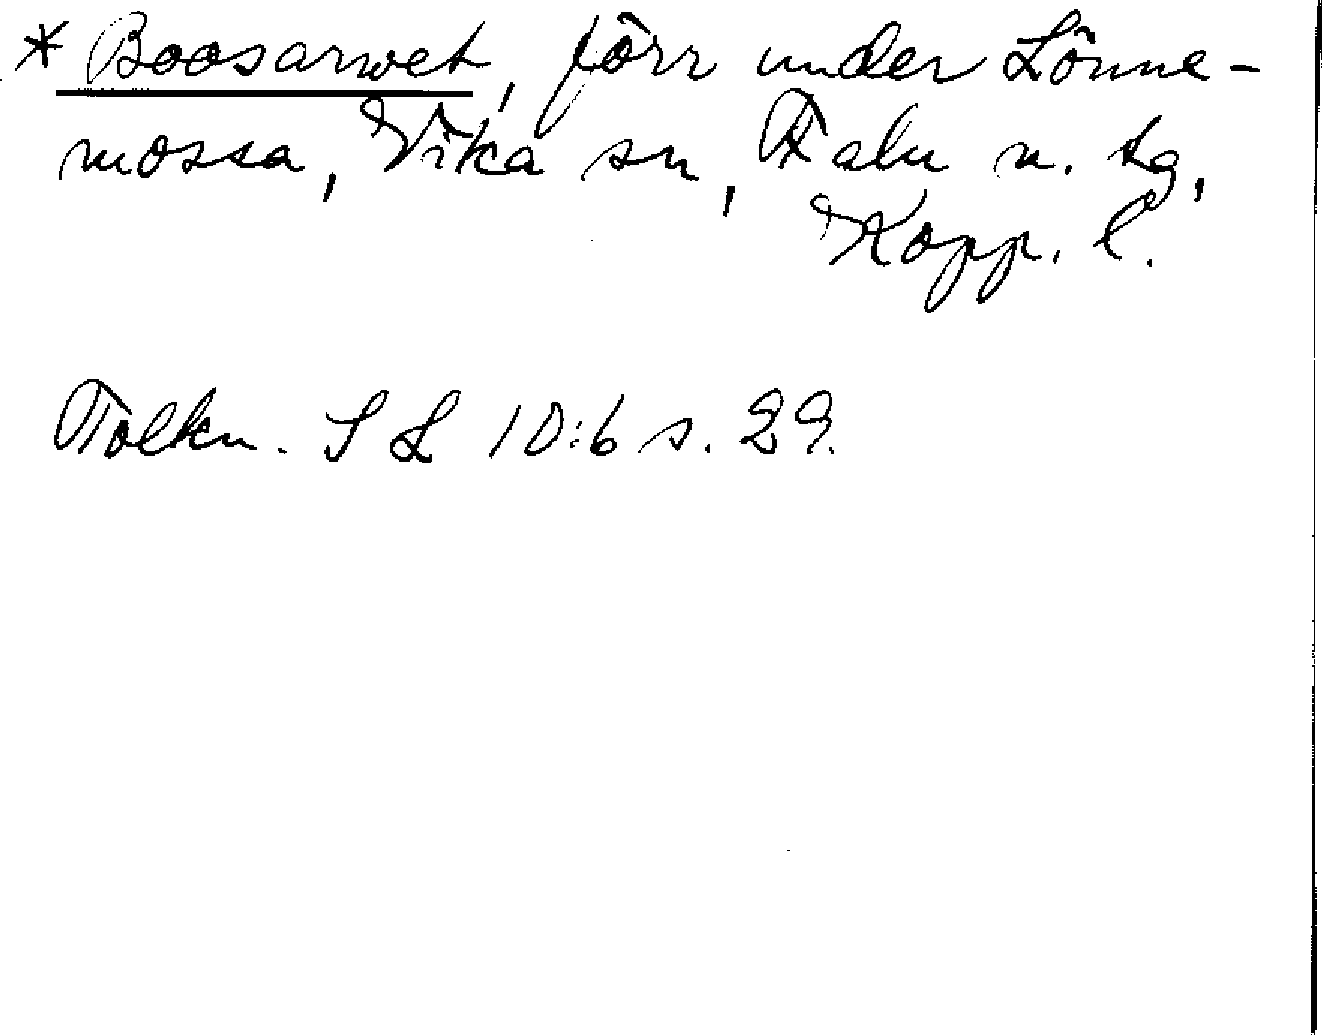 * Boosarwet, förr under Lönne-
mossa, Vika sn, Falu n. tg,
Kopp. l.
Tolkn. SL 10:6 s. 29.